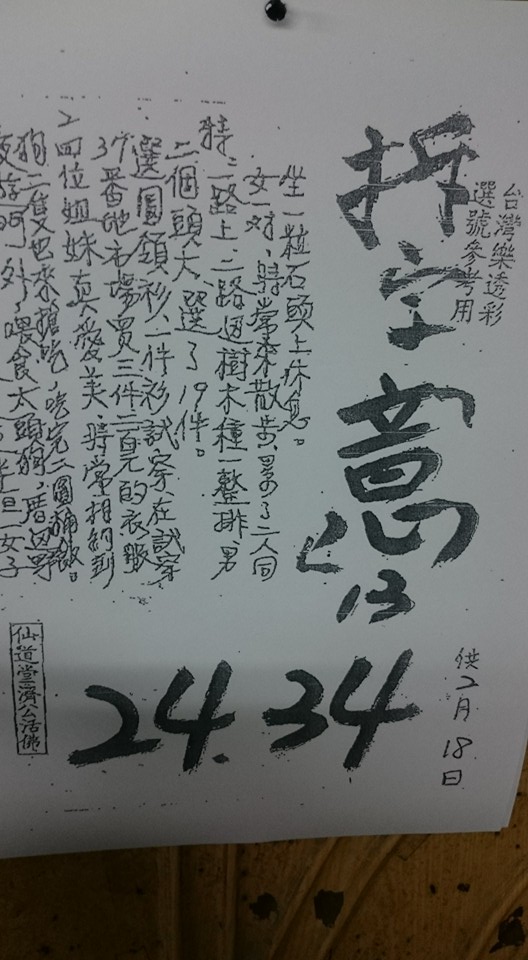 台灣樂透彩
選號參考用
拆字意
13
34
24.
供2月18日
坐一粒石頭上休息。
女一對,時常來散步,累了二人同
特:一路上二路邊樹木種一整排,男
二個頭大,選了19件。
選圓領衫,一件衫試穿,在試穿
37番地市場買三件二毛的衣服
2四位姐妹真愛美,時常相約到
狗二隻也來搶吃,吃完二圓桶飯。
門外,喂食大頭狗,厝邊野
仙道堂濟公活佛